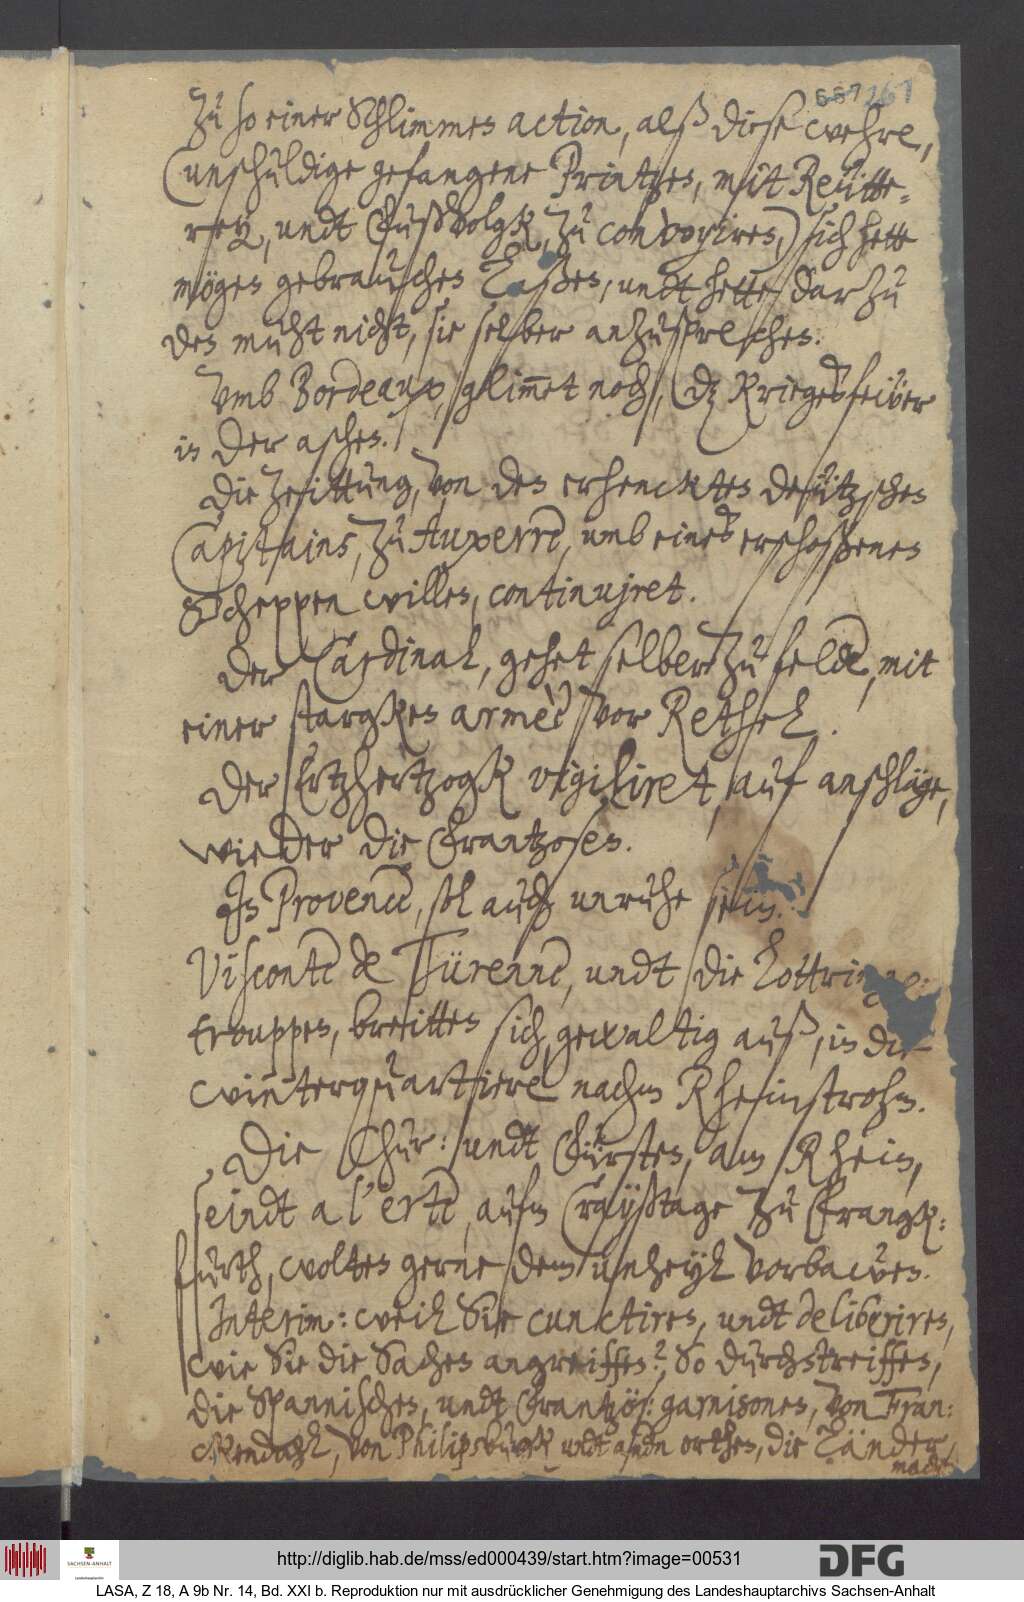 667 267
Zu so einer Schlimmen action, alß diese wehre,
(unschuldige gefangene Printzen, mit Reütte-
rey, undt Fußvolgk, zu convoyiren,) sich hette
mögen gebrauchen Laßen, undt hette darzu
den muht nicht, sie selber anzusprechen.
Vmb Bordeaux, glim̅et noch, dz Kriegesfeüer
in der aschen.
Die Zeittung, von den erhenckten deützschen
Capitains, zu Auxerre, umb eines erschoßenen
Scheppen willen, continujret.
Der Cardinal, gehet selber zu felde, mit
einer stargken armèe vor Rethel.
Der Ertzhertzogk vigiliret, auf anschläge,
wieder die Frantzosen.
In Provence, sol auch unruhe sein.
Visconte de Türenne, undt die Lottringe:
trouppen, breitten sich, gewaltig auß, in die
winterquartiere nachm Rheinstrohm.
Die Chur: undt Fürsten, am Rhein,
seindt a l'erte, aufm Crayßtage zu Frangk:
furth, wolten gerne dem unheyl vorbawen.
Interim: weil Sie cunctiren, undt deliberiren,
wie Sie die Sachen angreiffen? So durchstreiffen,
die Spannischen, undt Frantzös: garnisonen, von Fran:
ckendahl, von Philipsburgk undt andern orthen, die Länder
nach
http://diglib.hab.de/mss/ed000439/start.htm?image=00531
SACHSEN-ANHALT
Landeshauptarchiv
DFG
LASA, Z 18, A 9b Nr. 14, Bd. XXI b. Reproduktion nur mit ausdrücklicher Genehmigung des Landeshauptarchivs Sachsen-Anhalt